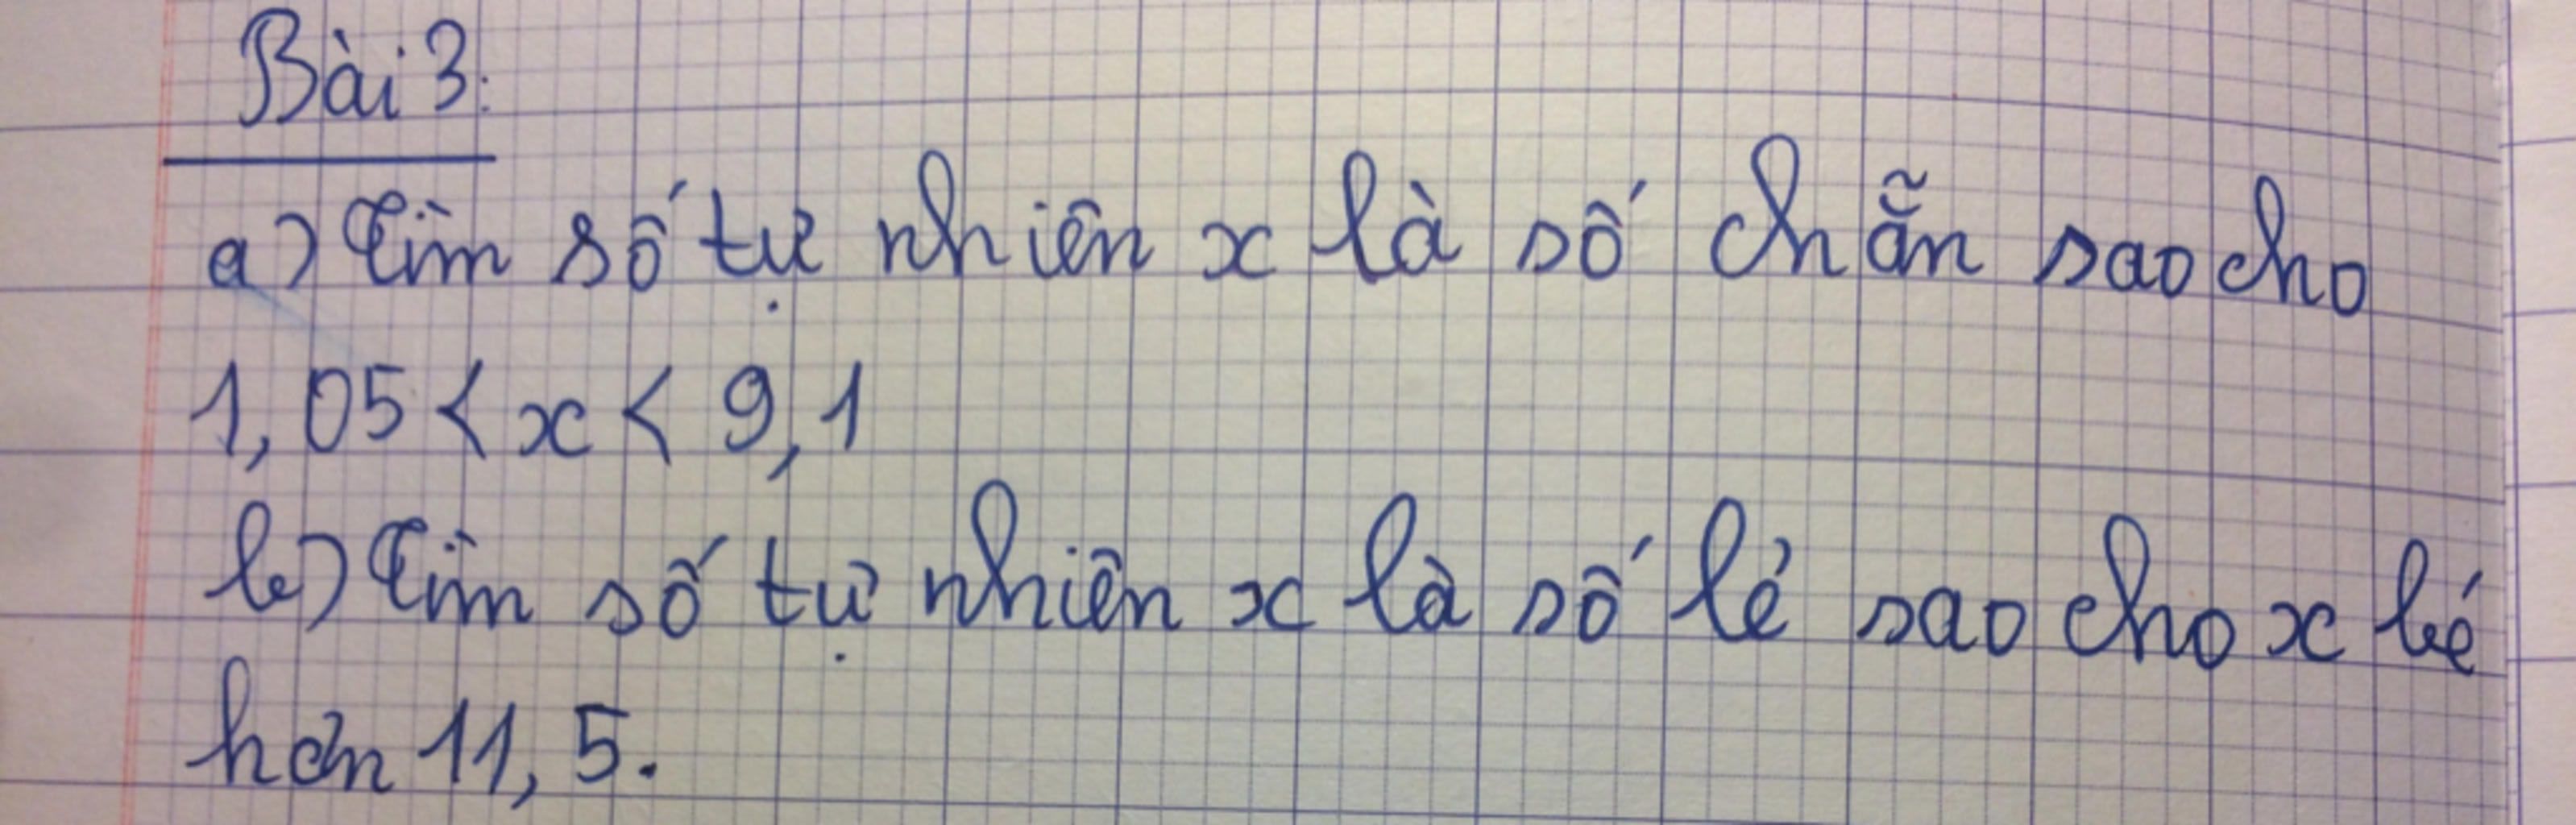 Bài 3:
a) Tìm số tự nhiên x là số chẵn sao cho
1,05 < x < 9,1
b) Tìm số tự nhiên x là số lẻ sao cho x bé
hơn 11,5.